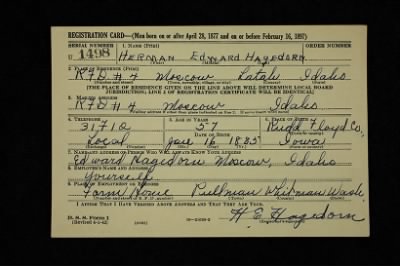 REGISTRATION CARD—(Men born on or after April 28, 1877 and on or before February 16, 1897)
SERIAL NUMBER 1. NAME (Print) ORDER NUMBER
U 1498 HERMAN EDWARD HAGEDORN
2. PLACE OF RESIDENCE (Print)
RFD #4 Moscow Latah Idaho
[THE PLACE OF RESIDENCE GIVEN ON THE LINE ABOVE WILL DETERMINE LOCAL BOARD
JURISDICTION; LINE 2 OF REGISTRATION CERTIFICATE WILL BE IDENTICAL]
3. MAILING ADDRESS
RFD #4 Moscow Idaho
4. TELEPHONE 5. AGE IN YEARS 6. PLACE OF BIRTH
3171Q 57 Rudd Floyd Co,
DATE OF BIRTH
Local Jan 16 1885 Iowa
7. NAME AND ADDRESS OF PERSON WHO WILL ALWAYS KNOW YOUR ADDRESS
Edward Hagedorn Moscow, Idaho
8. EMPLOYER'S NAME AND ADDRESS
Yourself
9. PLACE OF EMPLOYMENT OR BUSINESS
Farm Pullman Whitman Wash.
I AFFIRM THAT I HAVE VERIFIED ABOVE ANSWERS AND THAT THEY ARE TRUE.
D. S. S. Form 1
(Revised 4-1-42)
H. E. Hagedorn